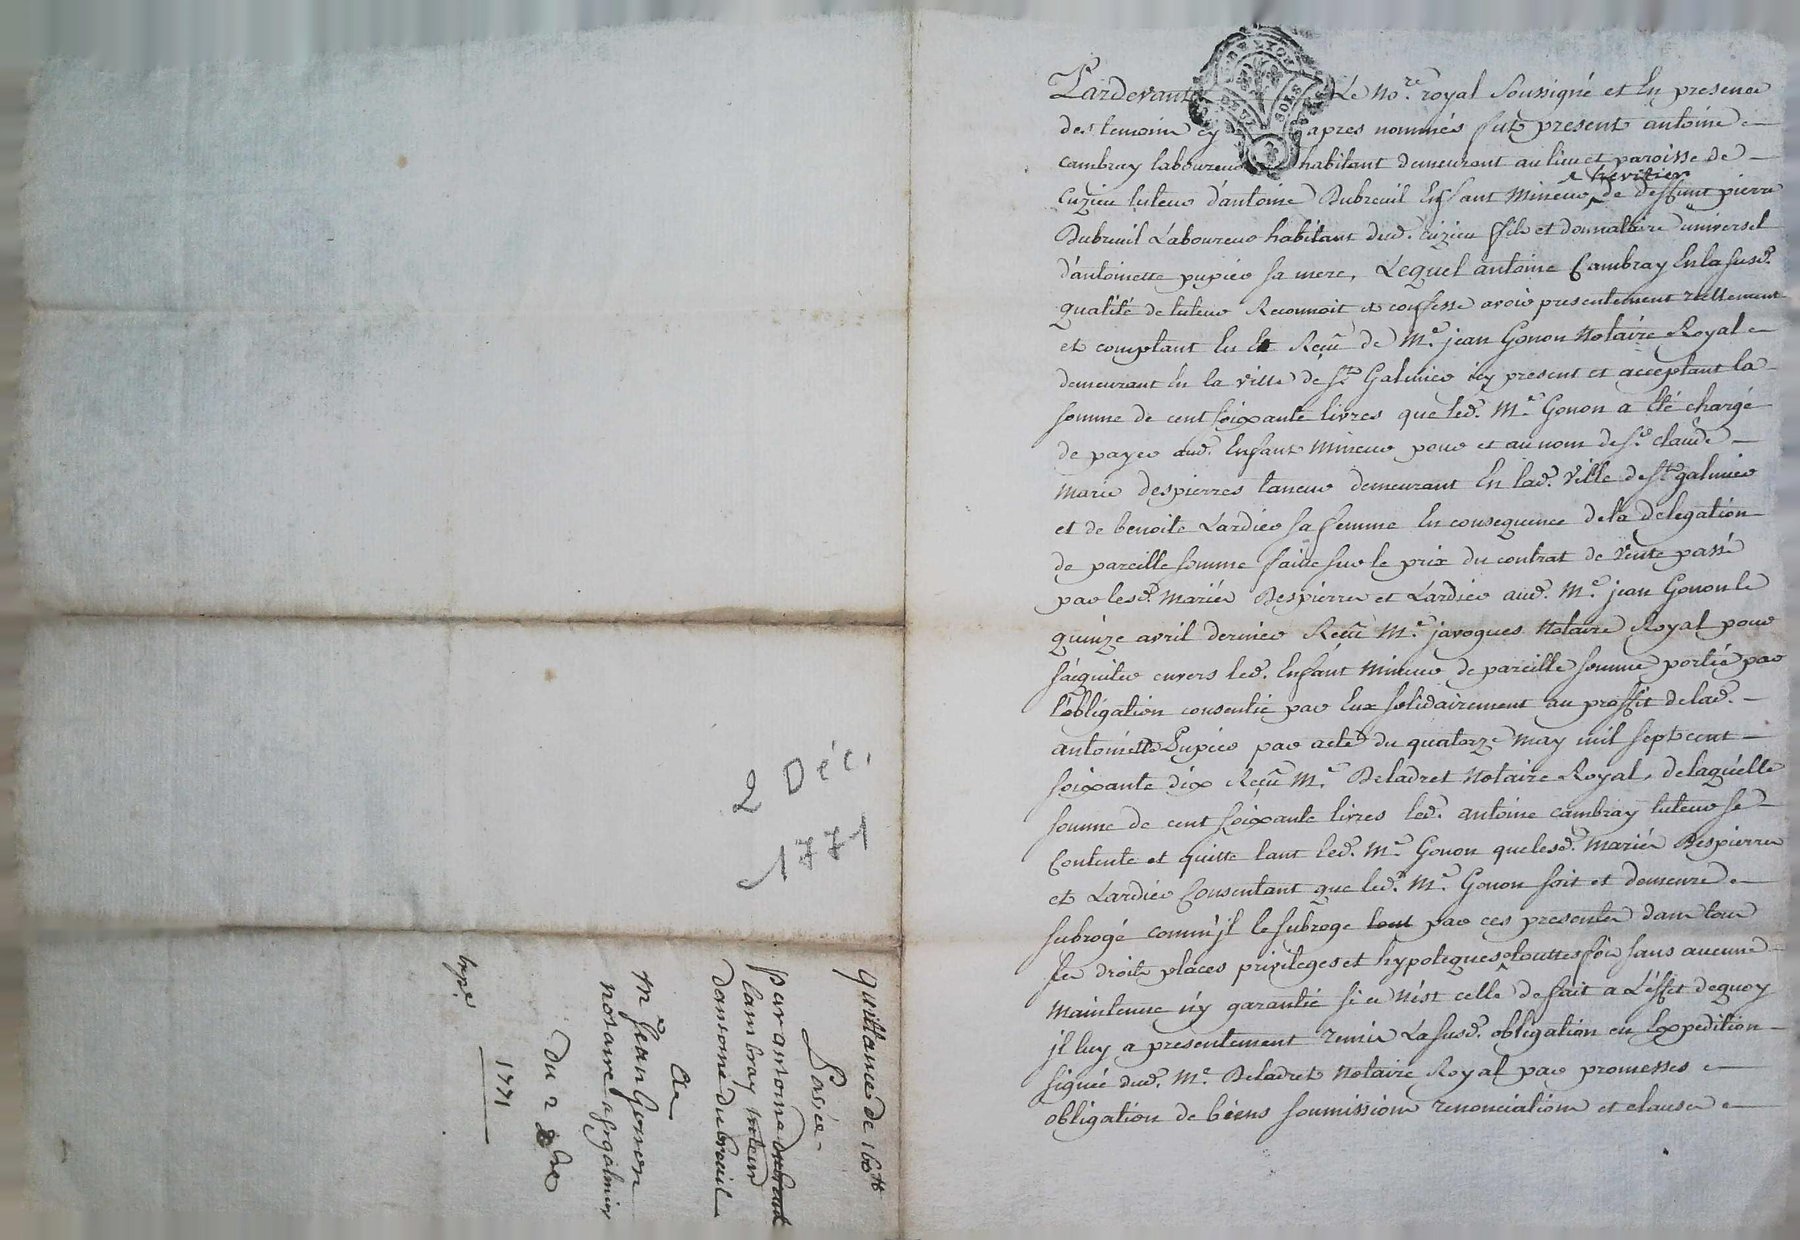 Pardevant Le No.re royal Soussigné et En presence
des temoins cy apres nommés fut present antoine
cambray laboureur habitant demeurant au lieu et paroisse de
& heritier
Cuzieu tuteur d'antoine Dubreuil Enfant Mineur de deffunt pierre
Dubreuil Laboureur habitant dud. cuzieu fils et donnataire universel
d'antoinette pupier sa mere, Lequel antoine Cambray En la susd.
qualité de tuteur Reconnoit et confesse avoir presentement reellement
et comptant Eu et Reçu de M.e jean Gonon Notaire Royal
demeurant En la ville de St Galmier icy present et acceptant la
somme de cent soixante livres que led. M.e Gonon a Eté chargé
de payer aud. Enfant Mineur pour et au nom de Sr. claude
Marie despierres taneur demeurant En lad. ville de St galmier
et de benoite Lardier sa femme En consequence de la délegation
de pareille somme faitte sur le prix du contrat de vente passé
par lesd. Mariés Despierres et Lardier aud. M.e jean Gonon le
quinze avril dernier Reçu M.e javogues Notaire Royal pour
s'aquiter envers led. Enfant Mineur de pareille somme portée par
l'obligation consentie par Eux solidairement au proffit de lad.
antoinette Pupier par acte du quatorze May mil sept cent
soixante dix Reçu M.e Deladret Notaire Royal, de laquelle
somme de cent soixante livres led. antoine cambray tuteur se
Contente et quitte tant led. M.e Gonon que lesd. Mariés Despierres
et Lardier Consentant que led. M.e Gonon soit et demeure
subrogé comm'jl le subroge tout par ces presentes dans tous
ses droits places privileges et hypoteques touttesfois sans aucune
Maintenue n'y garantie si ce N'est celle de fait a L'effet dequoy
jl luy a presentement remis La susd. obligation en Expedition
signée dud. M.e Deladret Notaire Royal par promesses
obligation de biens soumissions renonciations et clauses
2 Déc.
1771
quittance de 160tt
Passée
par antoine dubreuil
Cambray tuteur
dantoine dubreuil
a
Me Jean Gonon
notaire a st galmier
du 2 xbre
1771